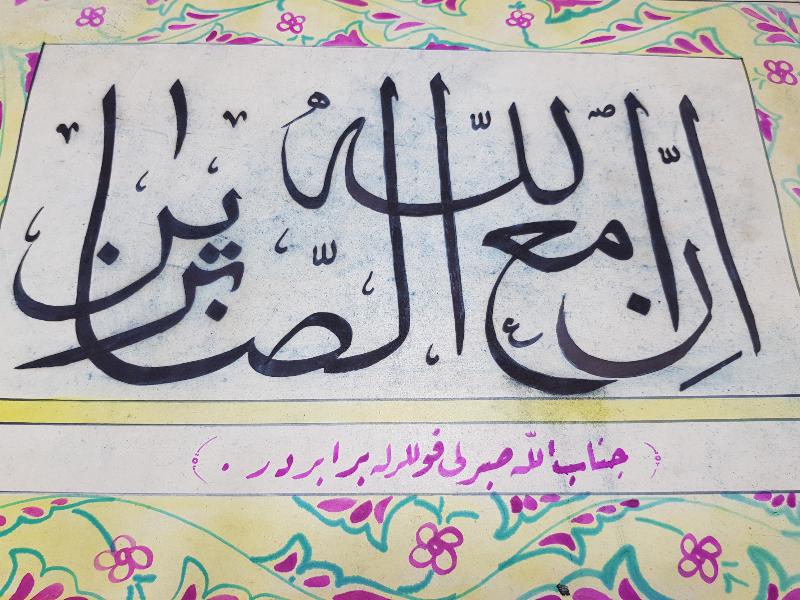 اِنَّ اللّٰهَ مَعَ الصَّابِرِينَ
(جناب اللّه صبرلى قوللرله برابردر.)